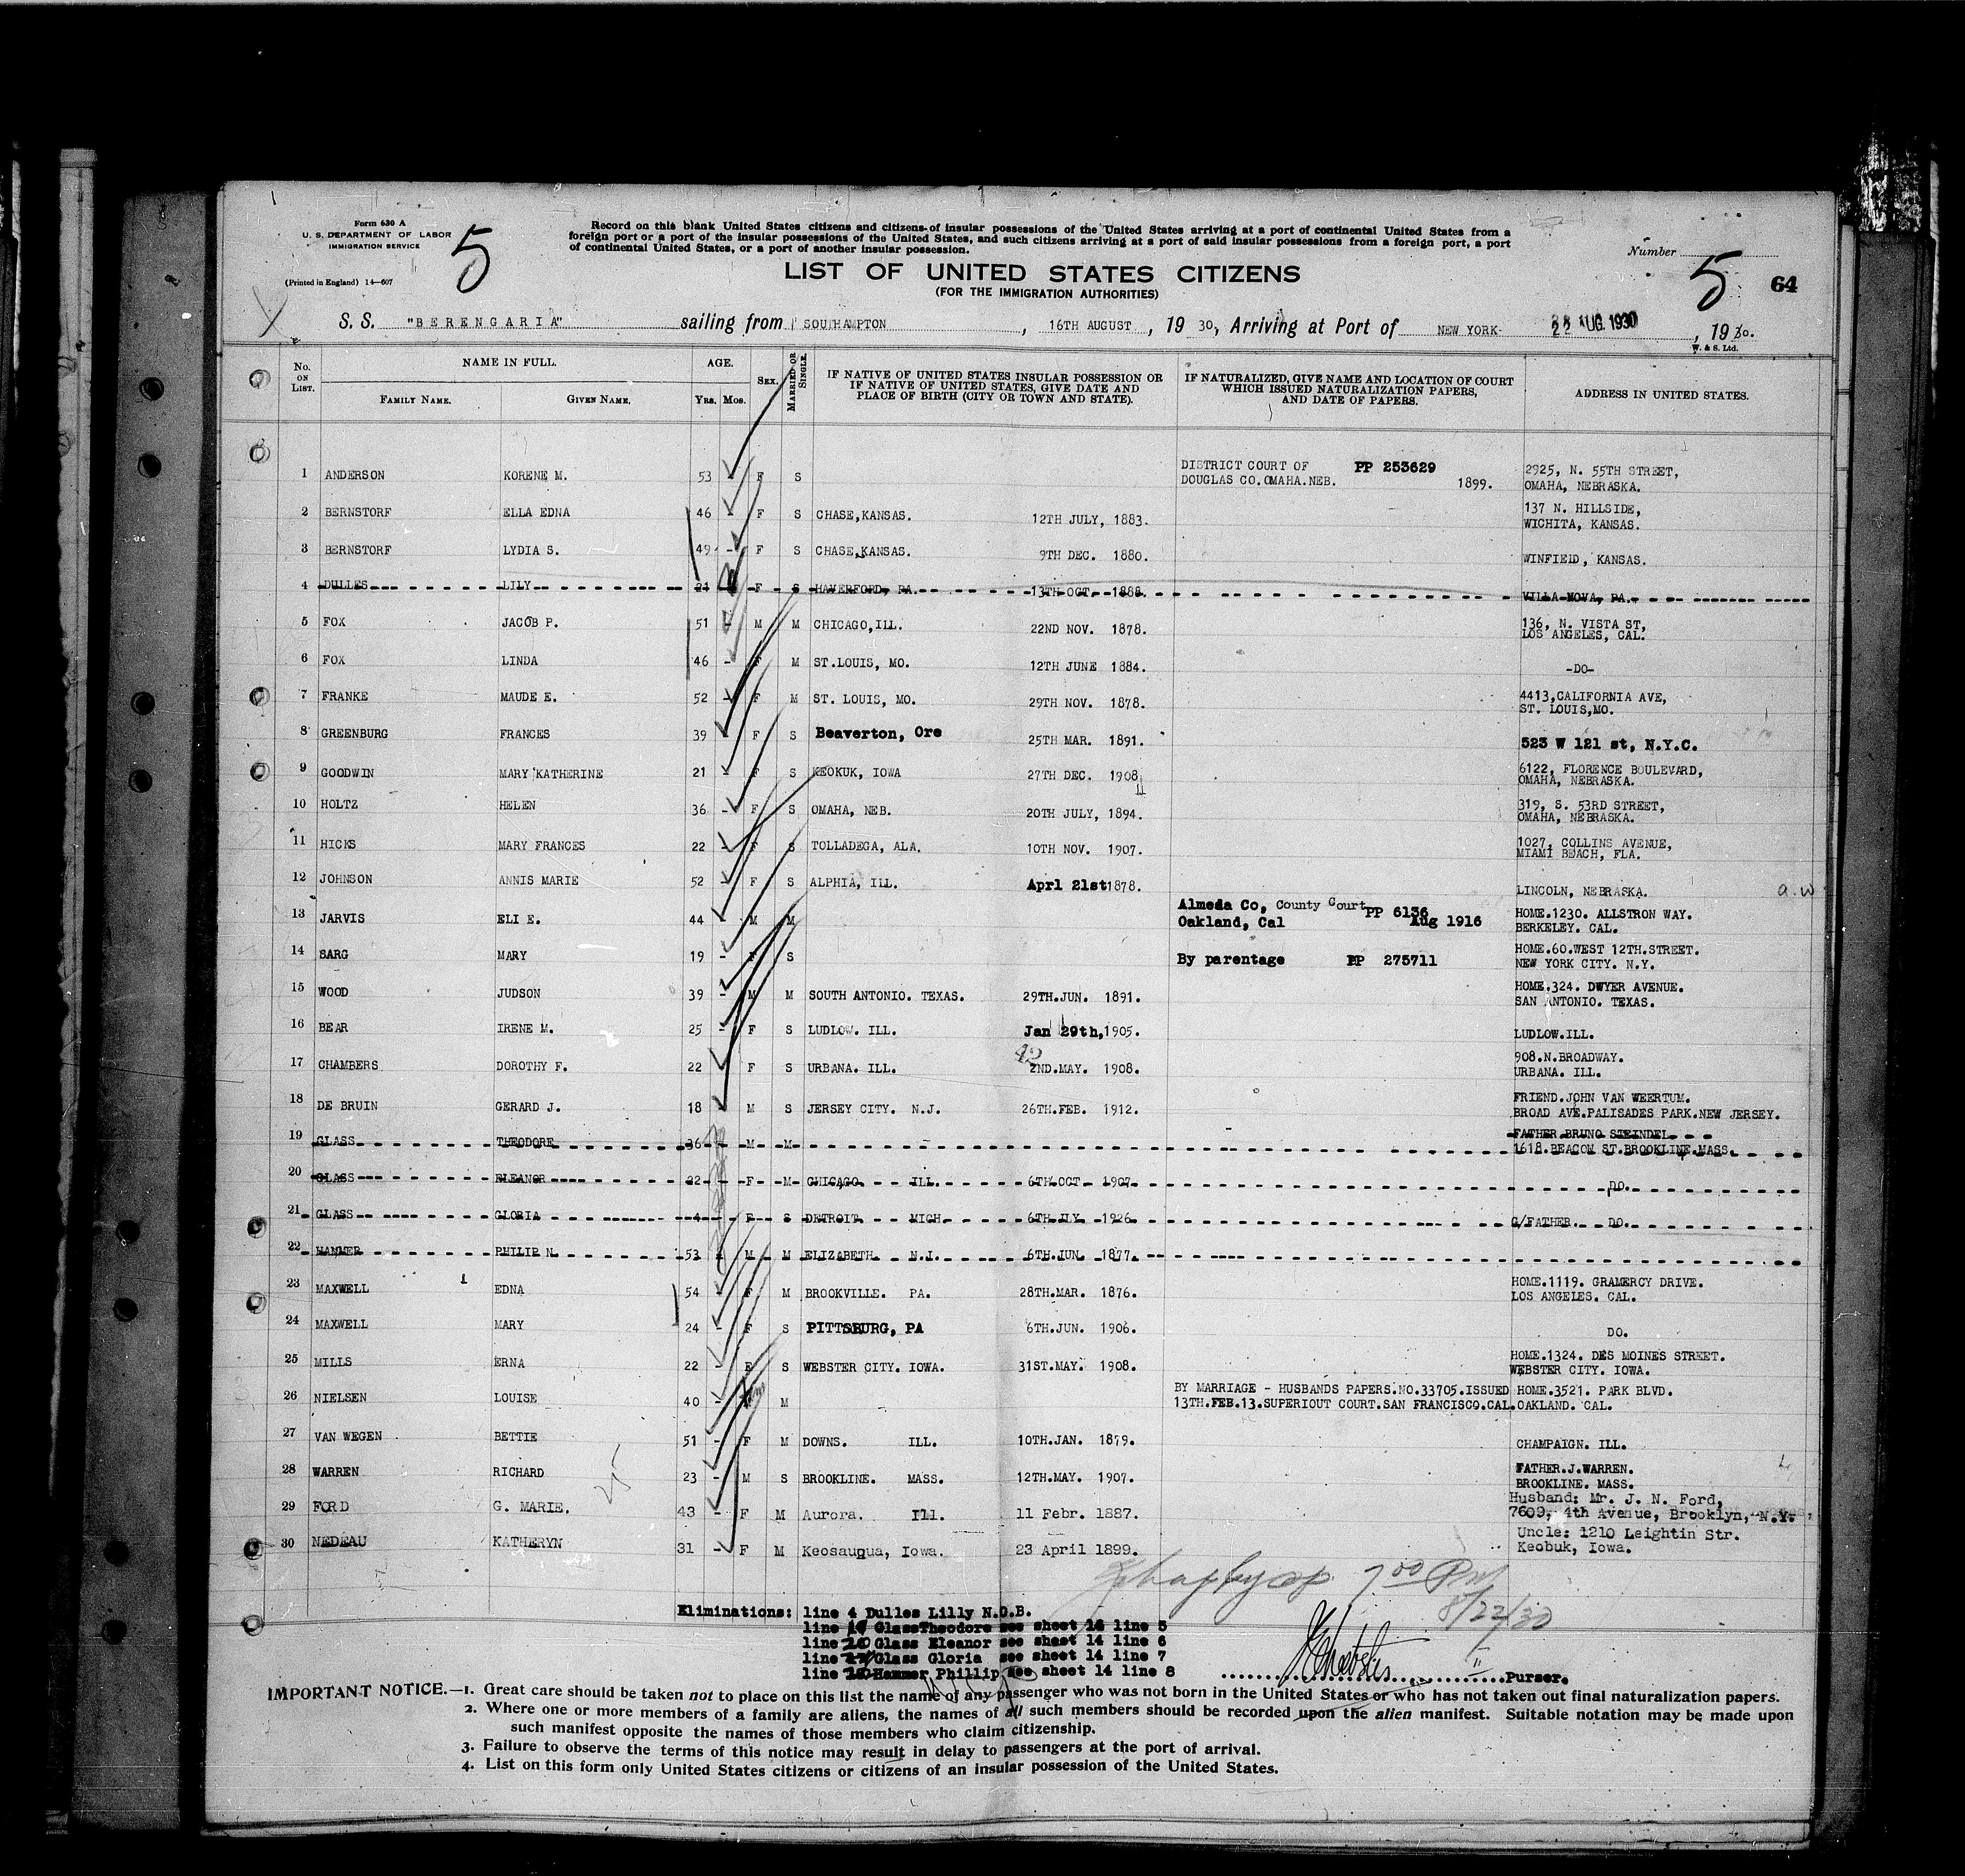 Form 630 A
U. S. DEPARTMENT OF LABOR
IMMIGRATION SERVICE
(Printed in England) 14—607
5
Record on this blank United States citizens and citizens of insular possessions of the United States arriving at a port of continental United States from a
foreign port or a port of the insular possessions of the United States, and such citizens arriving at a port of said insular possessions from a foreign port, a port
of continental United States, or a port of another insular possession.
LIST OF UNITED STATES CITIZENS
(FOR THE IMMIGRATION AUTHORITIES)
Number 5 64
S. S. "BERENGARIA" sailing from SOUTHAMPTON, 16TH AUGUST, 19 30, Arriving at Port of NEW YORK 22 AUG. 1930, 19 30.
W. & S. Ltd.
No. ON LIST. NAME IN FULL. AGE. SEX. MARRIED OR SINGLE. IF NATIVE OF UNITED STATES INSULAR POSSESSION OR IF NATIVE OF UNITED STATES, GIVE DATE AND PLACE OF BIRTH (CITY OR TOWN AND STATE). IF NATURALIZED, GIVE NAME AND LOCATION OF COURT WHICH ISSUED NATURALIZATION PAPERS, AND DATE OF PAPERS. ADDRESS IN UNITED STATES.
FAMILY NAME. GIVEN NAME. Yrs. Mos.
1 ANDERSON KORENE M. 53 F S DISTRICT COURT OF DOUGLAS CO. OMAHA. NEB. PP 253629 1899. 2925, N. 55TH STREET, OMAHA, NEBRASKA.
2 BERNSTORF ELLA EDNA 46 - F S CHASE, KANSAS. 12TH JULY, 1883. 137 N. HILLSIDE, WICHITA, KANSAS.
3 BERNSTORF LYDIA S. 49 - F S CHASE, KANSAS. 9TH DEC. 1880. WINFIELD, KANSAS.
4 DULLES LILY 21 F S HAVERFORD, PA. 13TH OCT. 1888. VILLA NOVA, PA.
5 FOX JACOB P. 51 - M M CHICAGO, ILL. 22ND NOV. 1878. 136, N. VISTA ST, LOS ANGELES, CAL.
6 FOX LINDA 46 - F M ST. LOUIS, MO. 12TH JUNE 1884. -DO-
7 FRANKE MAUDE E. 52 - F M ST. LOUIS, MO. 29TH NOV. 1878. 4413, CALIFORNIA AVE, ST. LOUIS, MO.
8 GREENBURG FRANCES 39 F S Beaverton, Ore 25TH MAR. 1891. 523 W 121 st, N.Y.C.
9 GOODWIN MARY KATHERINE 21 - F S KEOKUK, IOWA 27TH DEC. 1908 6122, FLORENCE BOULEVARD, OMAHA, NEBRASKA.
10 HOLTZ HELEN 36 - F S OMAHA, NEB. 20TH JULY, 1894. 319, S. 53RD STREET, OMAHA, NEBRASKA.
11 HICKS MARY FRANCES 22 - F S TOLLADEGA, ALA. 10TH NOV. 1907. 1027, COLLINS AVENUE, MIAMI BEACH, FLA.
12 JOHNSON ANNIS MARIE 52 - F S ALPHIA, ILL. Aprl 21st 1878. LINCOLN, NEBRASKA. a.w
13 JARVIS ELI E. 44 - M M Almeda Co, County Court Oakland, Cal PP 6136 Aug 1916 HOME. 1230. ALLSTRON WAY. BERKELEY. CAL.
14 SARG MARY 19 - F S By parentage PP 275711 HOME. 60. WEST 12TH. STREET. NEW YORK CITY. N.Y.
15 WOOD JUDSON 39 - M M SOUTH ANTONIO. TEXAS. 29TH. JUN. 1891. HOME. 324. DWYER AVENUE. SAN ANTONIO. TEXAS.
16 BEAR IRENE M. 25 - F S LUDLOW. ILL. Jan 29th, 1905. LUDLOW. ILL.
17 CHAMBERS DOROTHY F. 22 F S URBANA. ILL. 2ND. MAY. 1908. 908. N. BROADWAY. URBANA. ILL.
18 DE BRUIN GERARD J. 18 - M S JERSEY CITY. N.J. 26TH. FEB. 1912. FRIEND. JOHN VAN WEERTUM. BROAD AVE. PALISADES PARK. NEW JERSEY.
19 GLASS THEODORE 36 - M M FATHER BRUNO STEINDEL 1618. BEACON ST. BROOKLINE. MASS.
20 GLASS ELEANOR 22 - F M CHICAGO ILL. 6TH OCT 1907 DO.
21 GLASS GLORIA 4 F S DETROIT MICH 6TH JLY 1926 G/FATHER. DO.
22 HAMMER PHILIP N. 53 M M ELIZABETH N.J. 6TH. JUN. 1877.
23 MAXWELL EDNA 54 - F M BROOKVILLE. PA. 28TH. MAR. 1876. HOME. 1119. GRAMERCY DRIVE. LOS ANGELES. CAL.
24 MAXWELL MARY 24 - F S PITTSBURG, PA 6TH. JUN. 1906. DO.
25 MILLS ERNA 22 - F S WEBSTER CITY. IOWA. 31ST. MAY. 1908. HOME. 1324. DES MOINES STREET. WEBSTER CITY. IOWA.
26 NIELSEN LOUISE 40 - M BY MARRIAGE - HUSBANDS PAPERS. NO. 33705. ISSUED 13TH. FEB. 13. SUPERIOUT COURT. SAN FRANCISCO. CAL. HOME. 3521. PARK BLVD. OAKLAND. CAL.
27 VAN WEGEN BETTIE 51 - F M DOWNS. ILL. 10TH. JAN. 1879. CHAMPAIGN. ILL.
28 WARREN RICHARD 23 - M S BROOKLINE. MASS. 12TH. MAY. 1907. FATHER. J. WARREN. BROOKLINE. MASS.
29 FORD G. MARIE. 43 - F M Aurora. Ill. 11 Febr. 1887. Husband: Mr. J. N. Ford, 7609, 4th Avenue, Brooklyn, N.Y.
30 NEDEAU KATHERYN 31 - F M Keosauqua, Iowa. 23 April 1899. Uncle: 1210 Leightin Str. Keobuk, Iowa.
7 00 PM
8/22/30
Eliminations: line 4 Dulles Lilly N.O.B.
line Glass Theodore see sheet 14 line 5
line Glass Eleanor see sheet 14 line 6
line Glass Gloria see sheet 14 line 7
line Hammer Phillip see sheet 14 line 8
Purser.
IMPORTANT NOTICE.—1. Great care should be taken not to place on this list the name of any passenger who was not born in the United States or who has not taken out final naturalization papers.
2. Where one or more members of a family are aliens, the names of all such members should be recorded upon the alien manifest. Suitable notation may be made upon
such manifest opposite the names of those members who claim citizenship.
3. Failure to observe the terms of this notice may result in delay to passengers at the port of arrival.
4. List on this form only United States citizens or citizens of an insular possession of the United States.